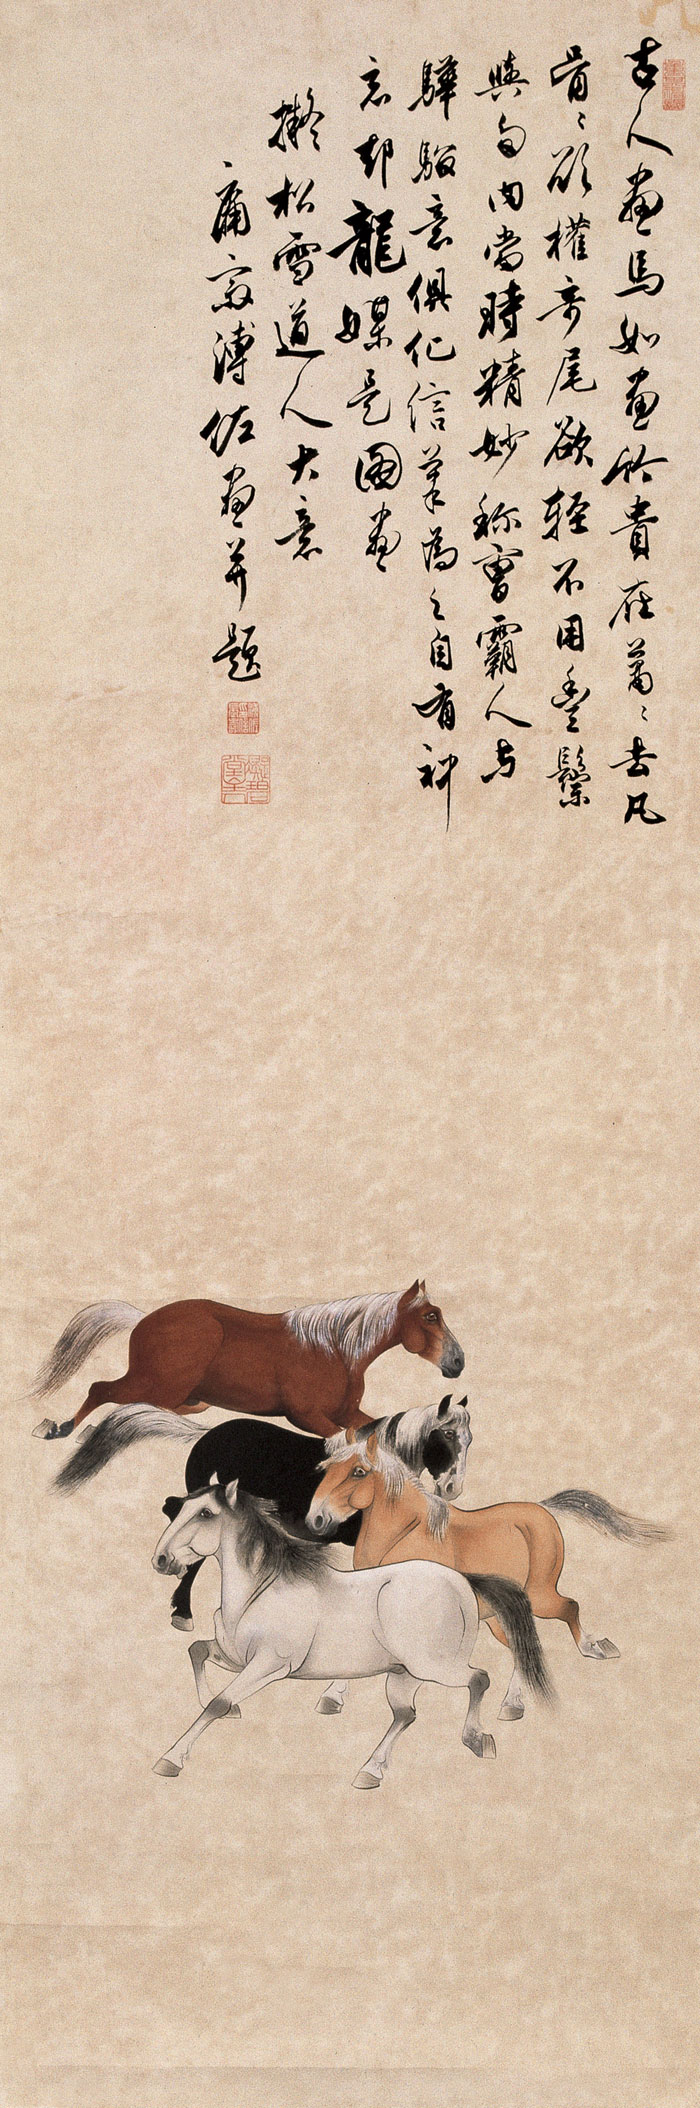 古人畫馬如畫竹貴在蕭〻去凡
骨〻欲權奇尾欲輕不用豐鬃
與多肉當時精妙称曹霸人与
驊騮意俱化信筆為之自有神
忘却龍媒是圖畫
擬松雪道人大意
庸齋溥佐畫并題